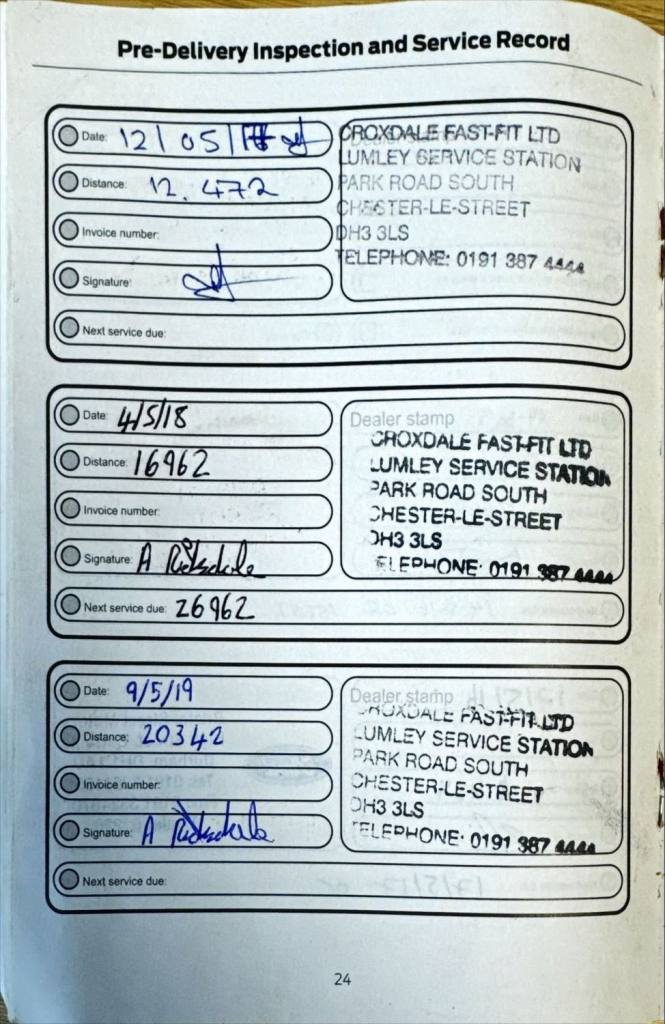 Pre-Delivery Inspection and Service Record
Date: 12/05/
Distance: 12.472
Invoice number:
Signature:
Next service due:
CROXDALE FAST-FIT LTD
LUMLEY SERVICE STATION
PARK ROAD SOUTH
CHESTER-LE-STREET
DH3 3LS
TELEPHONE: 0191 387 4444
Date: 4/5/18
Distance: 16962
Invoice number:
Signature: A
Next service due: 26962
Dealer stamp
CROXDALE FAST-FIT LTD
LUMLEY SERVICE STATION
PARK ROAD SOUTH
CHESTER-LE-STREET
DH3 3LS
TELEPHONE: 0191 387 4444
Date: 9/5/19
Distance: 20342
Invoice number:
Signature: A
Next service due:
Dealer stamp
CROXDALE FAST-FIT LTD
LUMLEY SERVICE STATION
PARK ROAD SOUTH
CHESTER-LE-STREET
DH3 3LS
TELEPHONE: 0191 387 4444
24